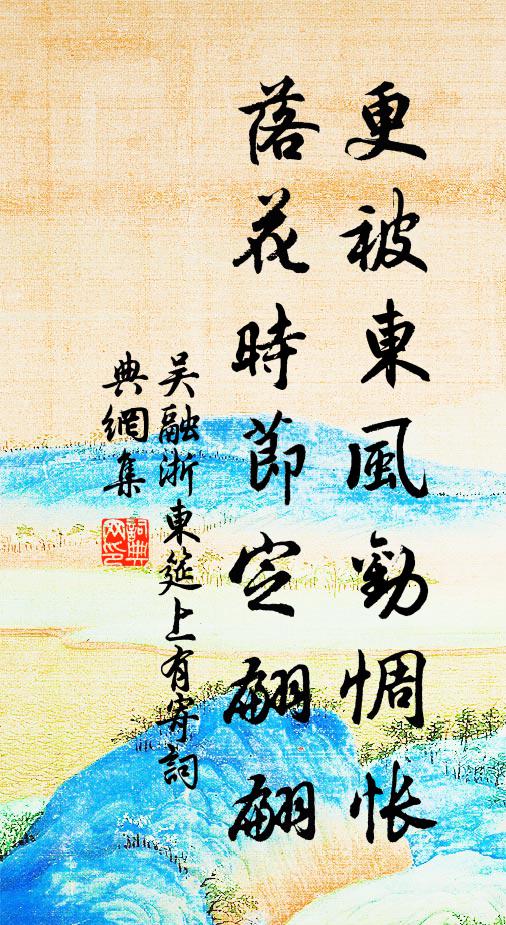 更被東風勸惆悵
落花時節定翩翩
吳融浙東筵上有寄詞
典網集
詞典网印